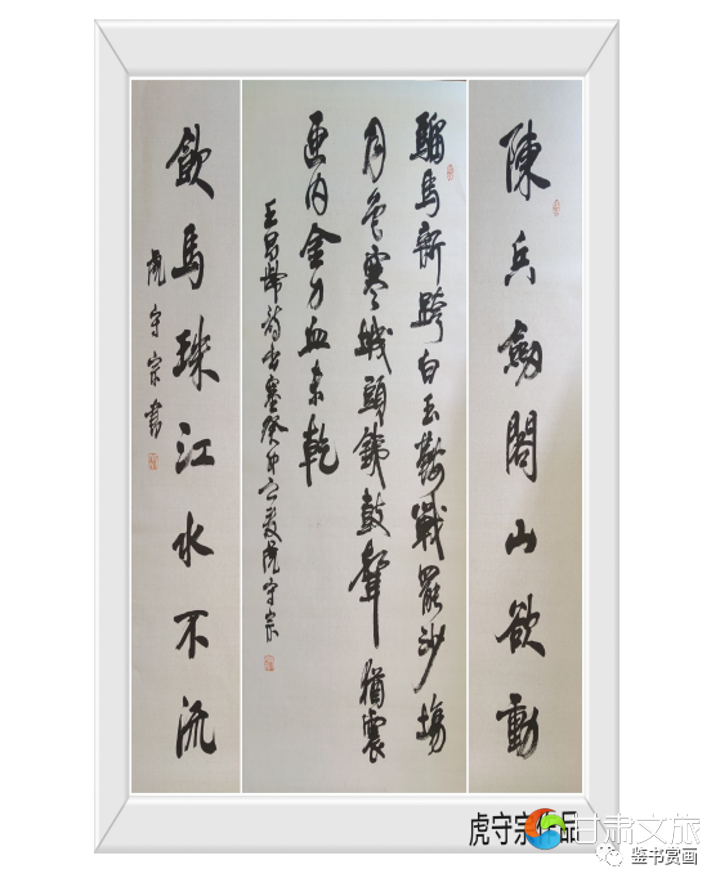 陳兵劍閣山欲動
騮馬新跨白玉鞍戰罷沙場
月色寒城頭鐵鼓聲猶震
匣内金刀血未乾
王昌齡詩出塞癸卯之夏虎守宗
飲馬珠江水不流
虎守宗書
虎守宗作品
甘肃文旅
鉴书赏画